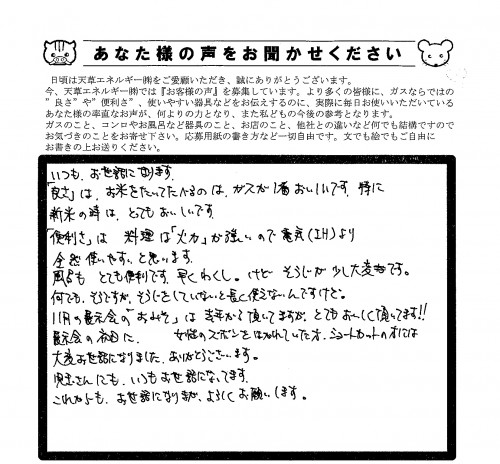 あなた様の声をお聞かせください
日頃は天草エネルギー㈱をご愛顧いただき、誠にありがとうございます。
今、天草エネルギー㈱では『お客様の声』を募集しています。より多くの皆様に、ガスならではの
"良さ"や"便利さ"、使いやすい器具などをお伝えするのに、実際に毎日お使いいただいている
あなた様の率直なお声が、何よりの力となり、また私どもの今後の参考となります。
ガスのこと、コンロやお風呂など器具のこと、お店のこと、他社との違いなど何でも結構ですので
お気づきのことをお寄せ下さい。応募用紙の書き方など一切自由です。文でも絵でもご自由に
お書きの上お送りください。
いつも、お世話になります。
「良さ」は、お米をたいてたべるのは、ガスが1番おいしいです。特に
新米の時は、とてもおいしいです。
「便利さ」は 料理は「火力」が強いので電気(IH)より
全然使いやすいと思います。
風呂も とても便利です。早くわくし。けど そうじが少し大変です。
何でも、そうですが、そうじをしていないと長く使えないんですけど。
11月の展示会の「おみそ」は 去年から頂いてますが、とてもおいしく頂いてます!!
展示会の 女性のズボンをはかれていた方、ショートカットの方には
大変お世話になりました。ありがとうございます。
さんにも、いつもお世話になってます。
これからも、お世話になりますが、よろしくお願いします。